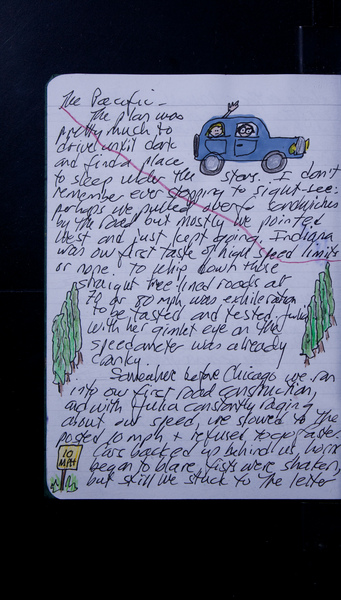 The Pacific -
The plan was
pretty much to
drive until dark
and find a place
to sleep under the stars. I don't
remember ever stopping to sight-see:
perhaps we pulled over for sandwiches
by the road, but mostly we pointed
West and just kept going. Indiana
was our first taste of high speed limits
or none. To whip down those
straight tree lined roads at
70 or 80 mph was exhileration
to be tasted and tested. Julia
with her gimlet eye on the
speedometer was already
cranky.
Somewhere before Chicago we ran
into our first road construction,
and with Julia constantly raging
about our speed, we slowed to the
posted 10 mph + refused to go faster.
Cars backed up behind us, horns
began to blare, fists were shaken,
but still we stuck to the letter
10
MPH